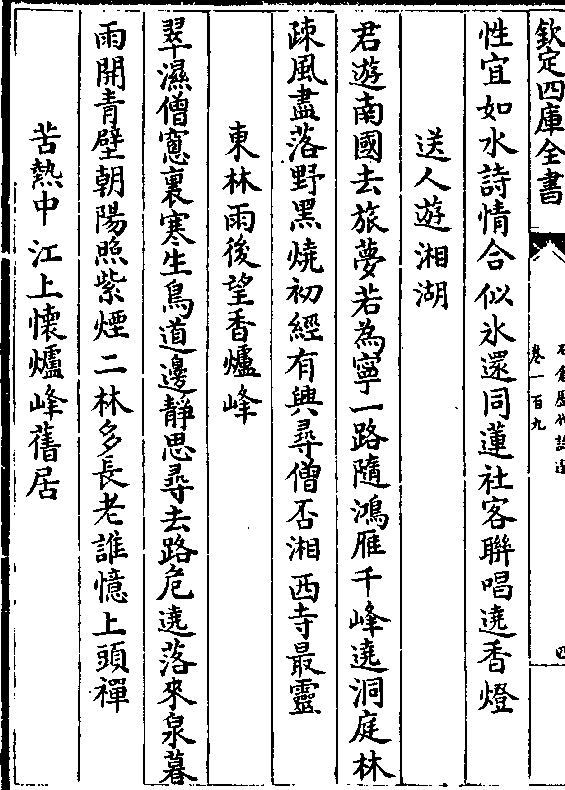 欽定四庫全書
石倉歷代詩選
卷一百九
四
性宜如水詩情合似氷還同蓮社客聯唱遶香燈
送人遊湘湖
君遊南國去旅夢若為寧一路隨鴻雁千峰遶洞庭林
疎風盡落野黑燒初經有興尋僧否湘西寺最靈
東林雨後望香爐峰
翠濕僧窻裏寒生鳥道邊靜思尋去路危遶落來泉暮
雨開青壁朝陽照紫煙二林多長老誰憶上頭禪
苦熱中江上懷爐峰舊居